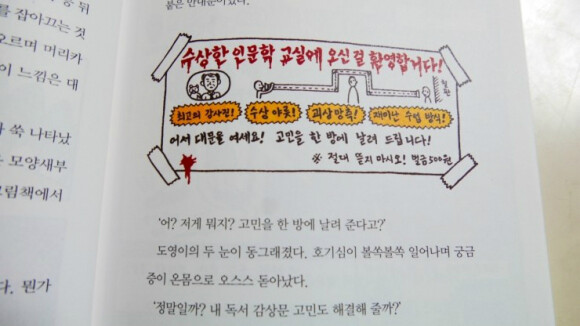 를 잡아끄는 것
오르며 미리카
이 느낌은 대
쑥 나타났
모양새부
림책에서
다. 뭔가
붙은 안내문이었다.
수상한 인문학 교실에 오신 걸 환영합니다!
최고의 강사진! 수상 야릇! 괴상 망측! 재미난 수업 방식!
어서 대문을 여세요! 고민을 한 방에 날려 드립니다!
※ 절대 뜯지 마시오! 벌금 500원
‘어? 저게 뭐지? 고민을 한 방에 날려 준다고?’
도영이의 두 눈이 동그래졌다. 호기심이 볼쏙볼쏙 일어나며 궁금
증이 온몸으로 오스스 돋아났다.
‘정말일까? 내 독서 감상문 고민도 해결해 줄까?’